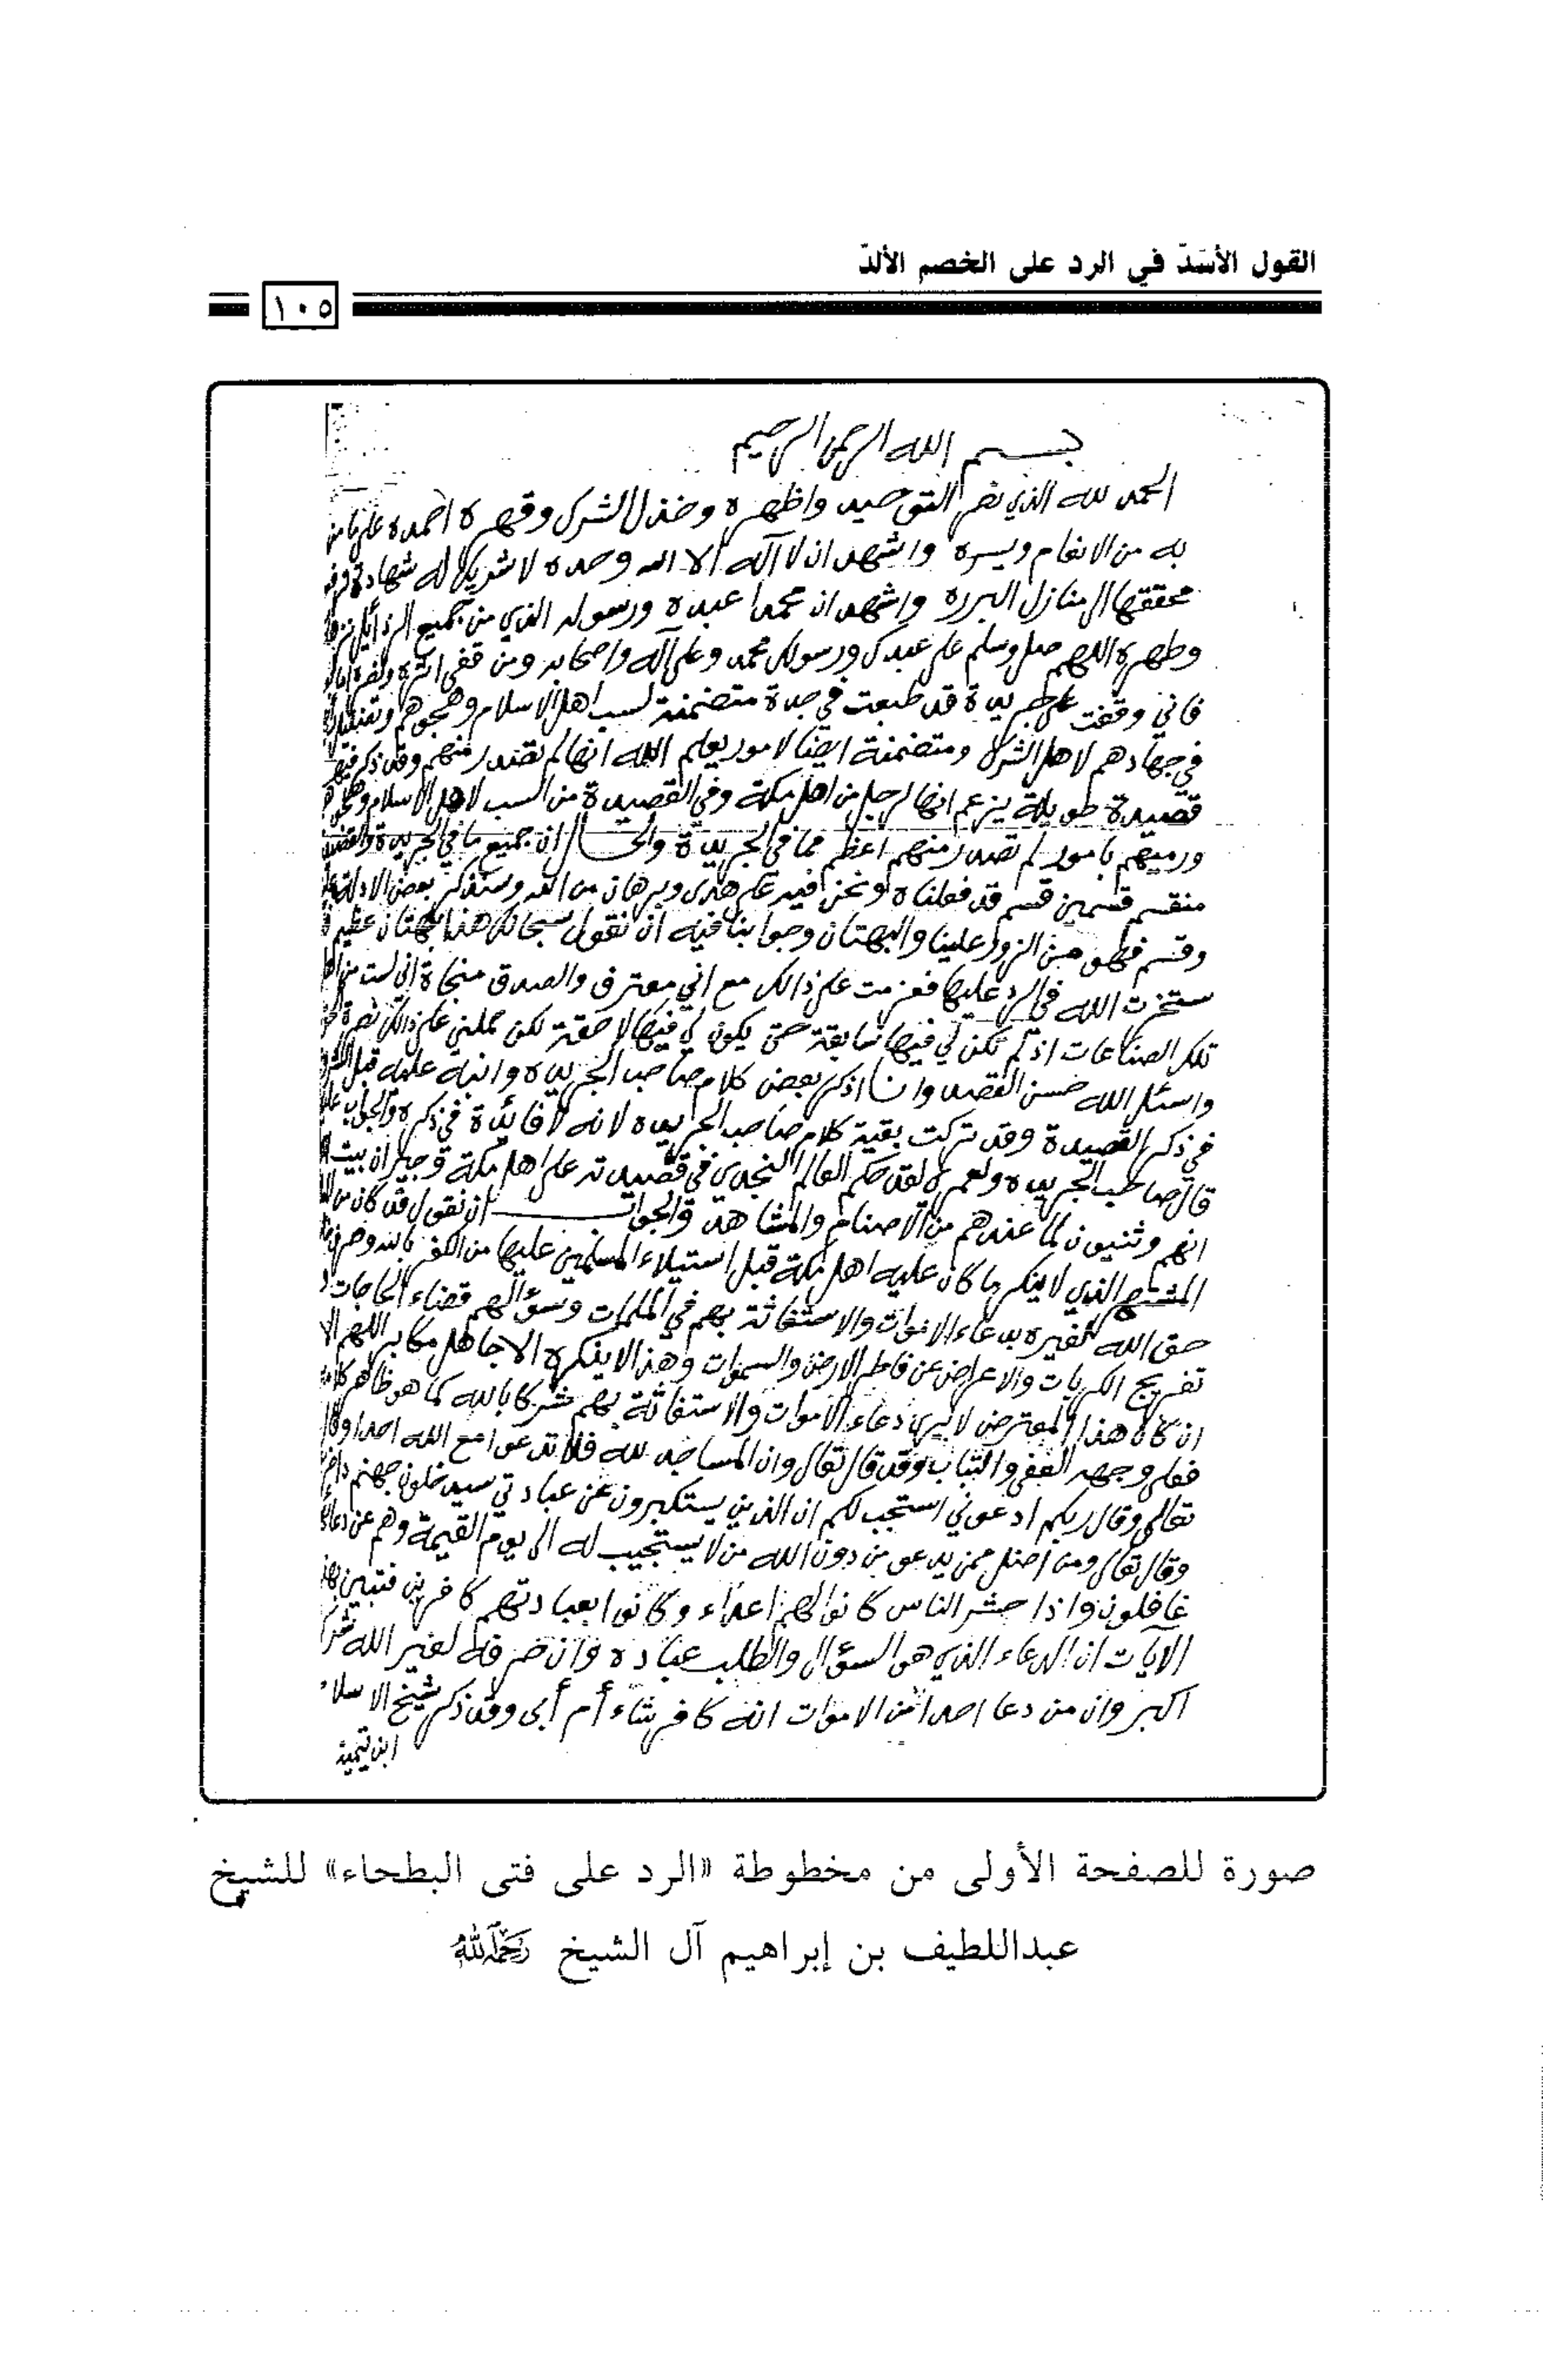 القول الأسَدّ في الرد على الخصم الألدّ
١٠٥
بسم الله الرحمن الرحيم
الحمد لله الذي نصر التوحيد واظهره وخذل الشرك وقهره احمده على ما من
به من الانعام ويسره واشهد ان لا آله الا الله وحده لا شريك له شهادة
محققها الى منازل البرره واشهد ان محمدا عبده ورسوله الذي من جميع الرذائل
وطهره اللهم صل وسلم على عبدك ورسولك محمد وعلى آله واصحابه ومن قفى اثره
فاني وقفت على جريدة قد طبعت في جدة متضمنة لسب اهل الاسلام وهجوهم
في جهادهم لاهل الشرك ومتضمنة ايضا لامور يعلم الله انها لم تصدر منهم وقد ذكر فيها
قصيدة طويلة يزعم انها لرجل من اهل مكة وفي القصيدة من السب لاهل الاسلام
ورميهم بامور لم تصدر منهم اعظم مما في الجريدة والحال ان جميع ما في الجريدة
منقسم قسمين قسم قد فعلناه ونحن فيه على هدى وبرهان من الله وسنذكر بعض الادلة
وقسم فهو من الزور علينا والبهتان وجوابنا فيه ان نقول سبحانك هذا بهتان عظيم
ستخرت الله في الرد عليها فعزمت على ذالك مع اني معترف والصدق منجاة اني لست من
تلك الصناعات اذ لم تكن لي فيها سابقة حتى يكون لي فيها لاحقة لكن حملني على ذالك نصرة
واسئل الله حسن القصد وانا اذكر بعض كلام صاحب الجريده وانبه عليه قبل
في ذكر القصيدة وقد تركت بقية كلام صاحب الجريده لانه لا فائدة في ذكره والجواب
قال صاحب الجريده ولعمري لقد حكم العالم النجدي في قصيدته على اهل مكة وجيران بيت
انهم وثنيون لما عندهم من الاصنام والمشاهد والجواب ان نقول قد كان من
الذي لا ينكر ما كان عليه اهل مكة قبل استيلاء المسلمين عليها من الكفر بالله وصرف
حق الله لغيره بدعاء الاموات والاستغاثة بهم في الملمات وسؤالهم قضاء الحاجات
تفريج الكربات والاعراض عن فاطر الارض والسموات وهذا لا ينكره الا جاهل مكابر اللهم الا
ان كان هذا المعترض لا يرى دعاء الاموات والاستغاثة بهم شركا بالله كما هو ظاهر
فعلى وجهه العفى والتباب وقد قال تعالى وان المساجد لله فلا تدعوا مع الله احدا وقال
تعالى وقال ربكم ادعوني استجب لكم ان الذين يستكبرون عن عبادتي سيدخلون جهنم
وقال تعالى ومن اضل ممن يدعو من دون الله من لا يستجيب له الى يوم القيمة وهم عن
غافلون واذا حشر الناس كانوا لهم اعداء وكانوا بعبادتهم كافرين فتبين
الآيات ان الدعاء الذي هو السؤال والطلب عباده وان صرفه لغير الله شرك
اكبر وان من دعا احدا من الاموات انه كافر شاء أم أبى وقد ذكر شيخ الاسلا
ابن تيمية
صورة للصفحة الأولى من مخطوطة «الرد على فتى البطحاء» للشيخ
عبداللطيف بن إبراهيم آل الشيخ رَحِمَهُ اللهُ